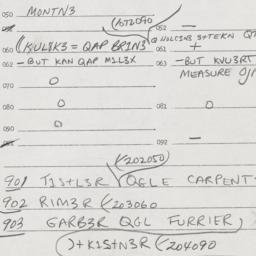 050 MONTN3
(AST2090
052 —
060 (KUL8K3 = QAP BRIN3
@ HOLC1N3 S+TEKN
061 +
062 —BUT KAN QAP M1L3X
063 —BUT KVU3RT
MEASURE
070 O
080 O
081 O
090 O
092 —
(202050)
901 T1S+L3R QGLE CARPENT
902 RIM3R (203060
903 GARB3R QGL FURRIER)
)+K1S+N3R (204090